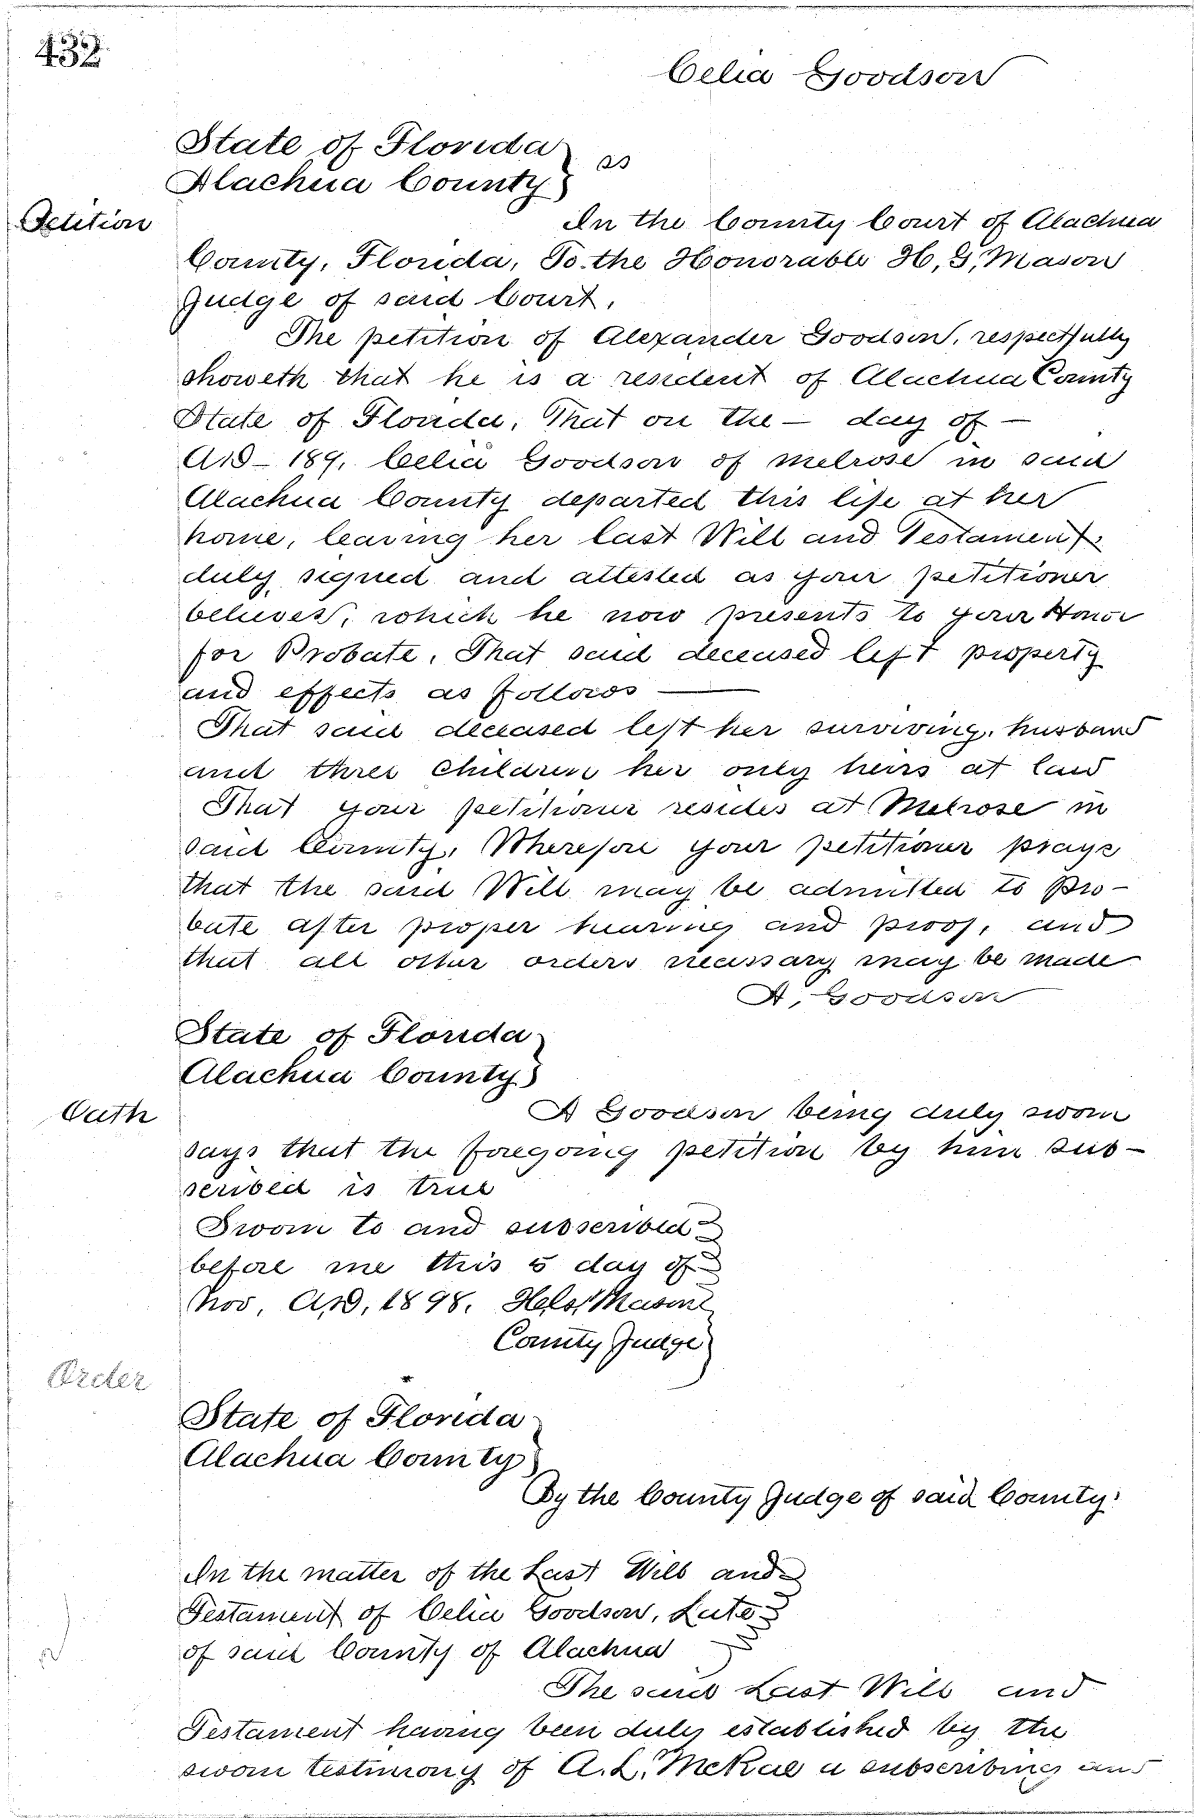 432
Celia Goodson
State of Florida
Alachua County } ss
Petition
In the County Court of Alachua
County, Florida, To the Honorable H, G, Mason
Judge of said Court.
The petition of Alexander Goodson, respectfully
showeth that he is a resident of Alachua County
State of Florida, That on the — day of —
A.D— 189, Celia Goodson of Melrose in said
Alachua County departed this life at her
home, leaving her last Will and Testament
duly signed and attested as your petitioner
believes, which he now presents to your Honor
for Probate. That said deceased left property
and effects as follows ———
That said deceased left her surviving, husband
and three children her only heirs at law
That your petitioner resides at Melrose in
said County, Wherefore your petitioner prays
that the said Will may be admitted to Pro-
bate after proper hearing and proof, and
that all other orders necessary may be made
A, Goodson
State of Florida
Alachua County }
Oath
A Goodson being duly sworn
says that the foregoing petition by him sub-
scribed is true
Sworn to and subscribed
before me this 5 day of
Nov, A,D, 1898. Mason
County Judge
Order
State of Florida
Alachua County }
By the County Judge of said County.
In the matter of the Last Will and
Testament of Celia Goodson, Late
of said County of Alachua
The said Last Will and
Testament having been duly established by the
sworn testimony of A. L. McRae a subscribing and